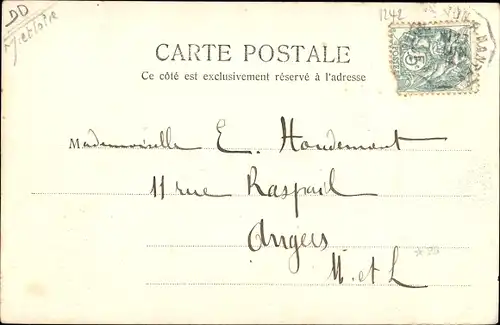 DD
1242
CARTE POSTALE
Ce côté est exclusivement réservé à l'adresse
Mademoiselle E. Houdemont
11 rue Raspail
Angers
M. et L